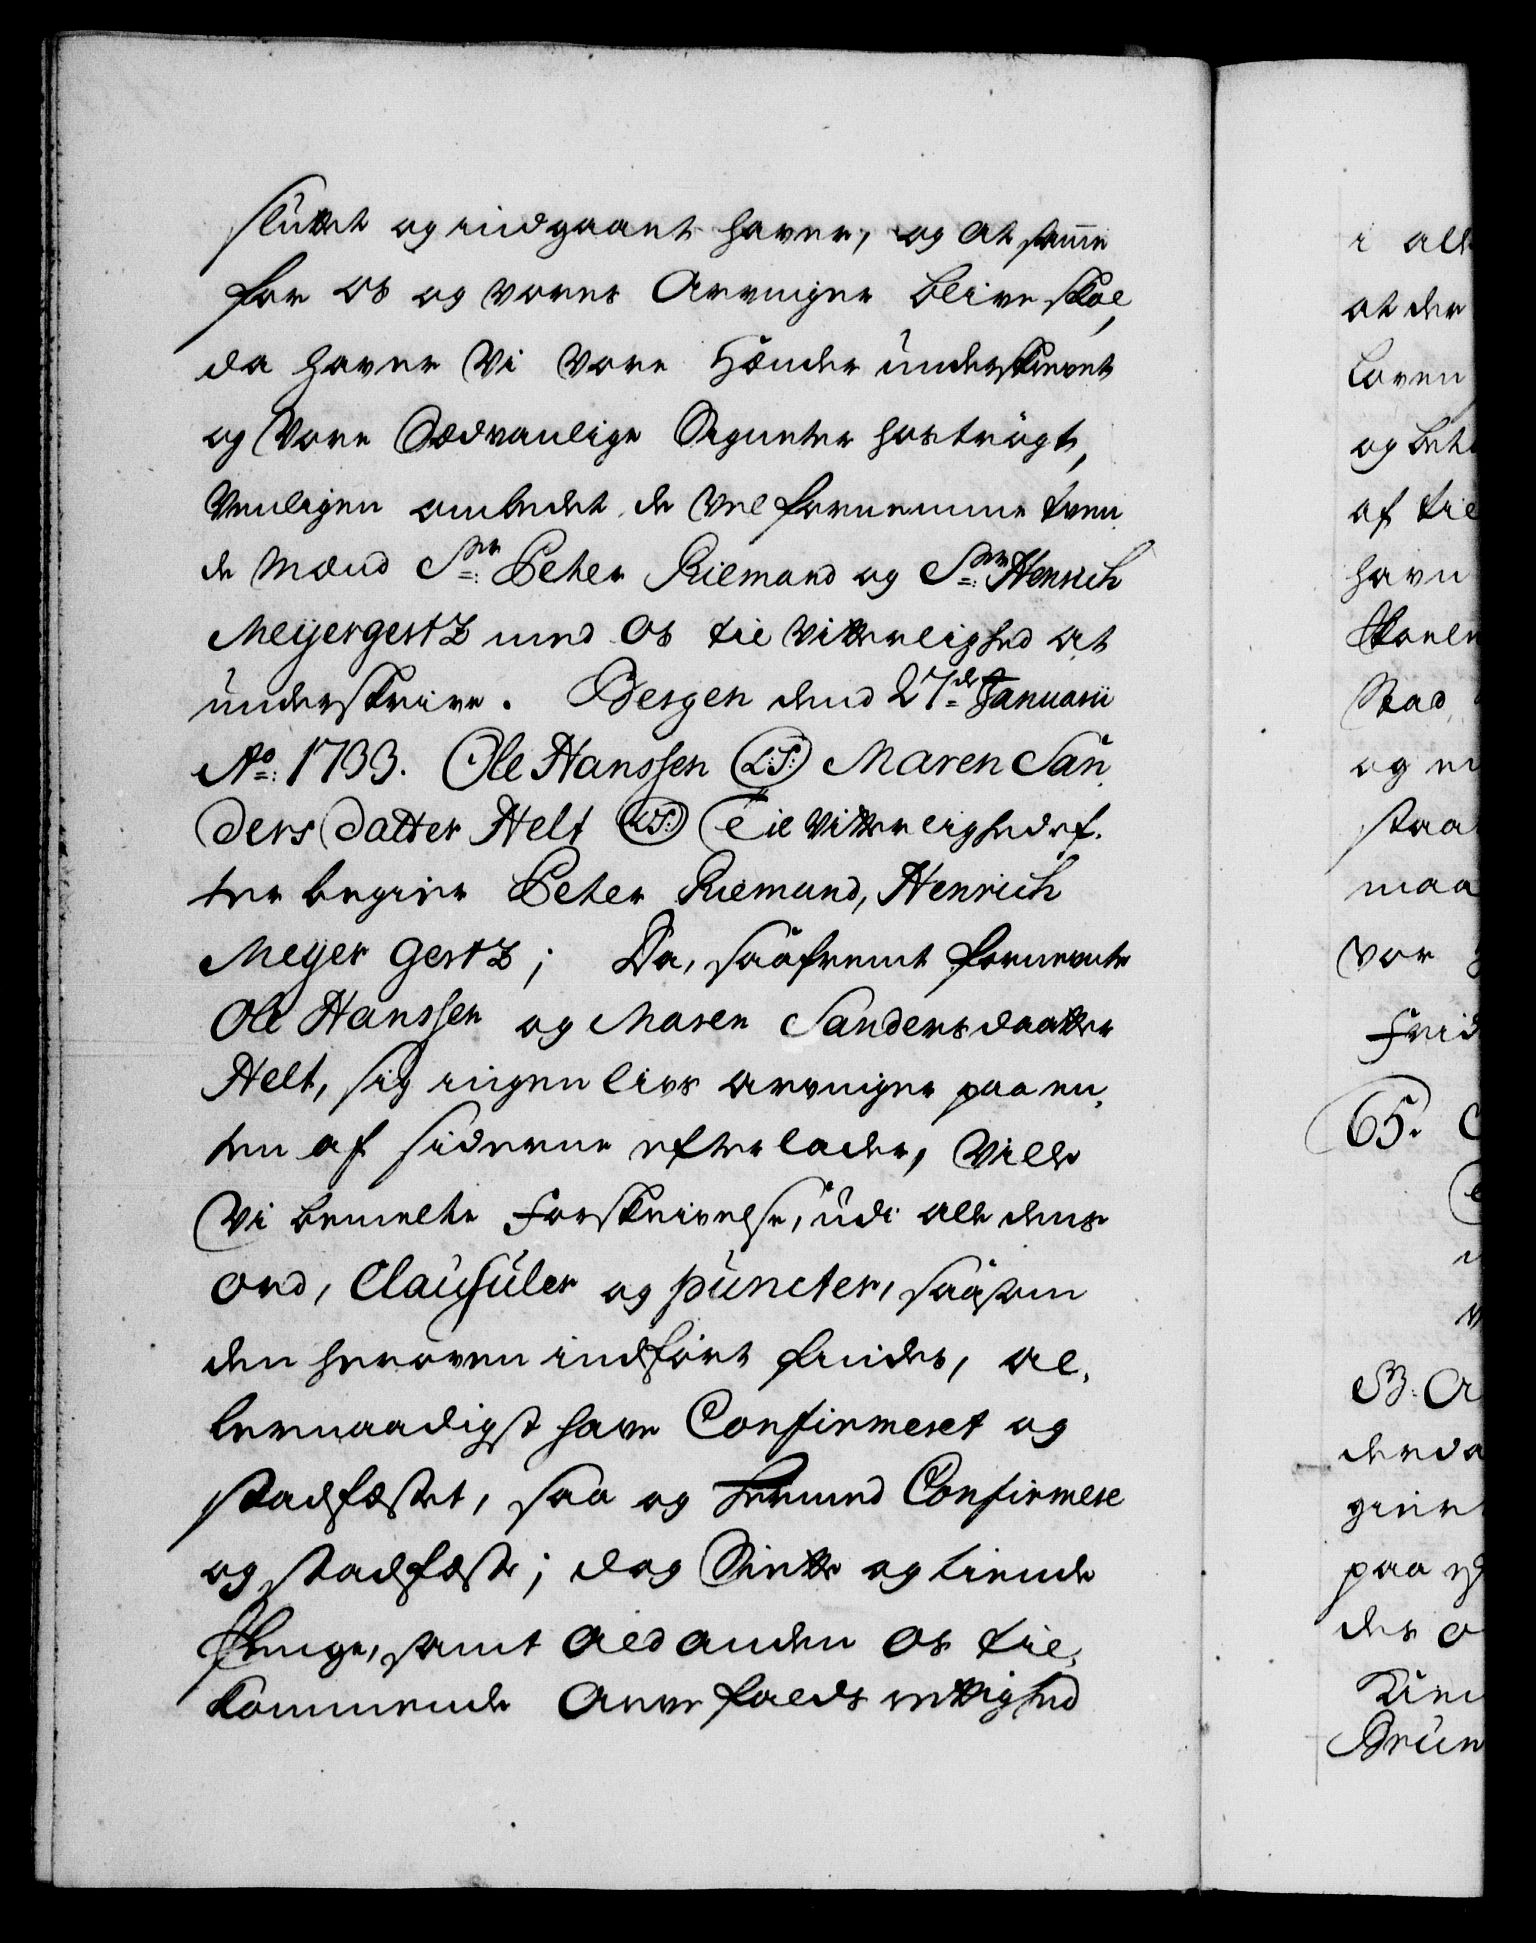 sluttet og indgaaet haver, og at samme
for os og vores Arvinger blive skal,
da haver Vi Vore Hænder underskrevet
og Vore Sædvanlige Signeter hoströgt,
Venligen ombedet de Vel fornemme tven
de Mænd Sr. Peter Riemand og Sr. Henrich
Meyergertz med Os til Vitterlighed at
underskrive. Bergen dend 27de Januarii
Ao: 1733. Ole Hanssen (L:S:) Maren San
ders datter Helt (L:S:) Til Vitterlighed ef.
ter begier Peter Riemand, Henrich
Meyer Gertz; Da, saafremt fornevnte
Ole Hanssen og Maren Sandersdaatter
Helt, sig ingen livs arvinger paa en,
ten af siderne efterlader, Ville
Vi bemelte Forskrivelse, udi alle dens
Ord, Clausuler og puncter, saasom
den heroven indført findes, al,
lernaadigst have Confirmeret og
stadfæstet, saa og hermed Confirmere
og stadfæste; dog Siette og tiende
Penge, samt ald anden Os til,
kommende Arve falds rettighed
i all
at der
Loven
og beh
af til
havn
Stad
og
staa
maa
vor
Frid
65.
B. A
paa
des o